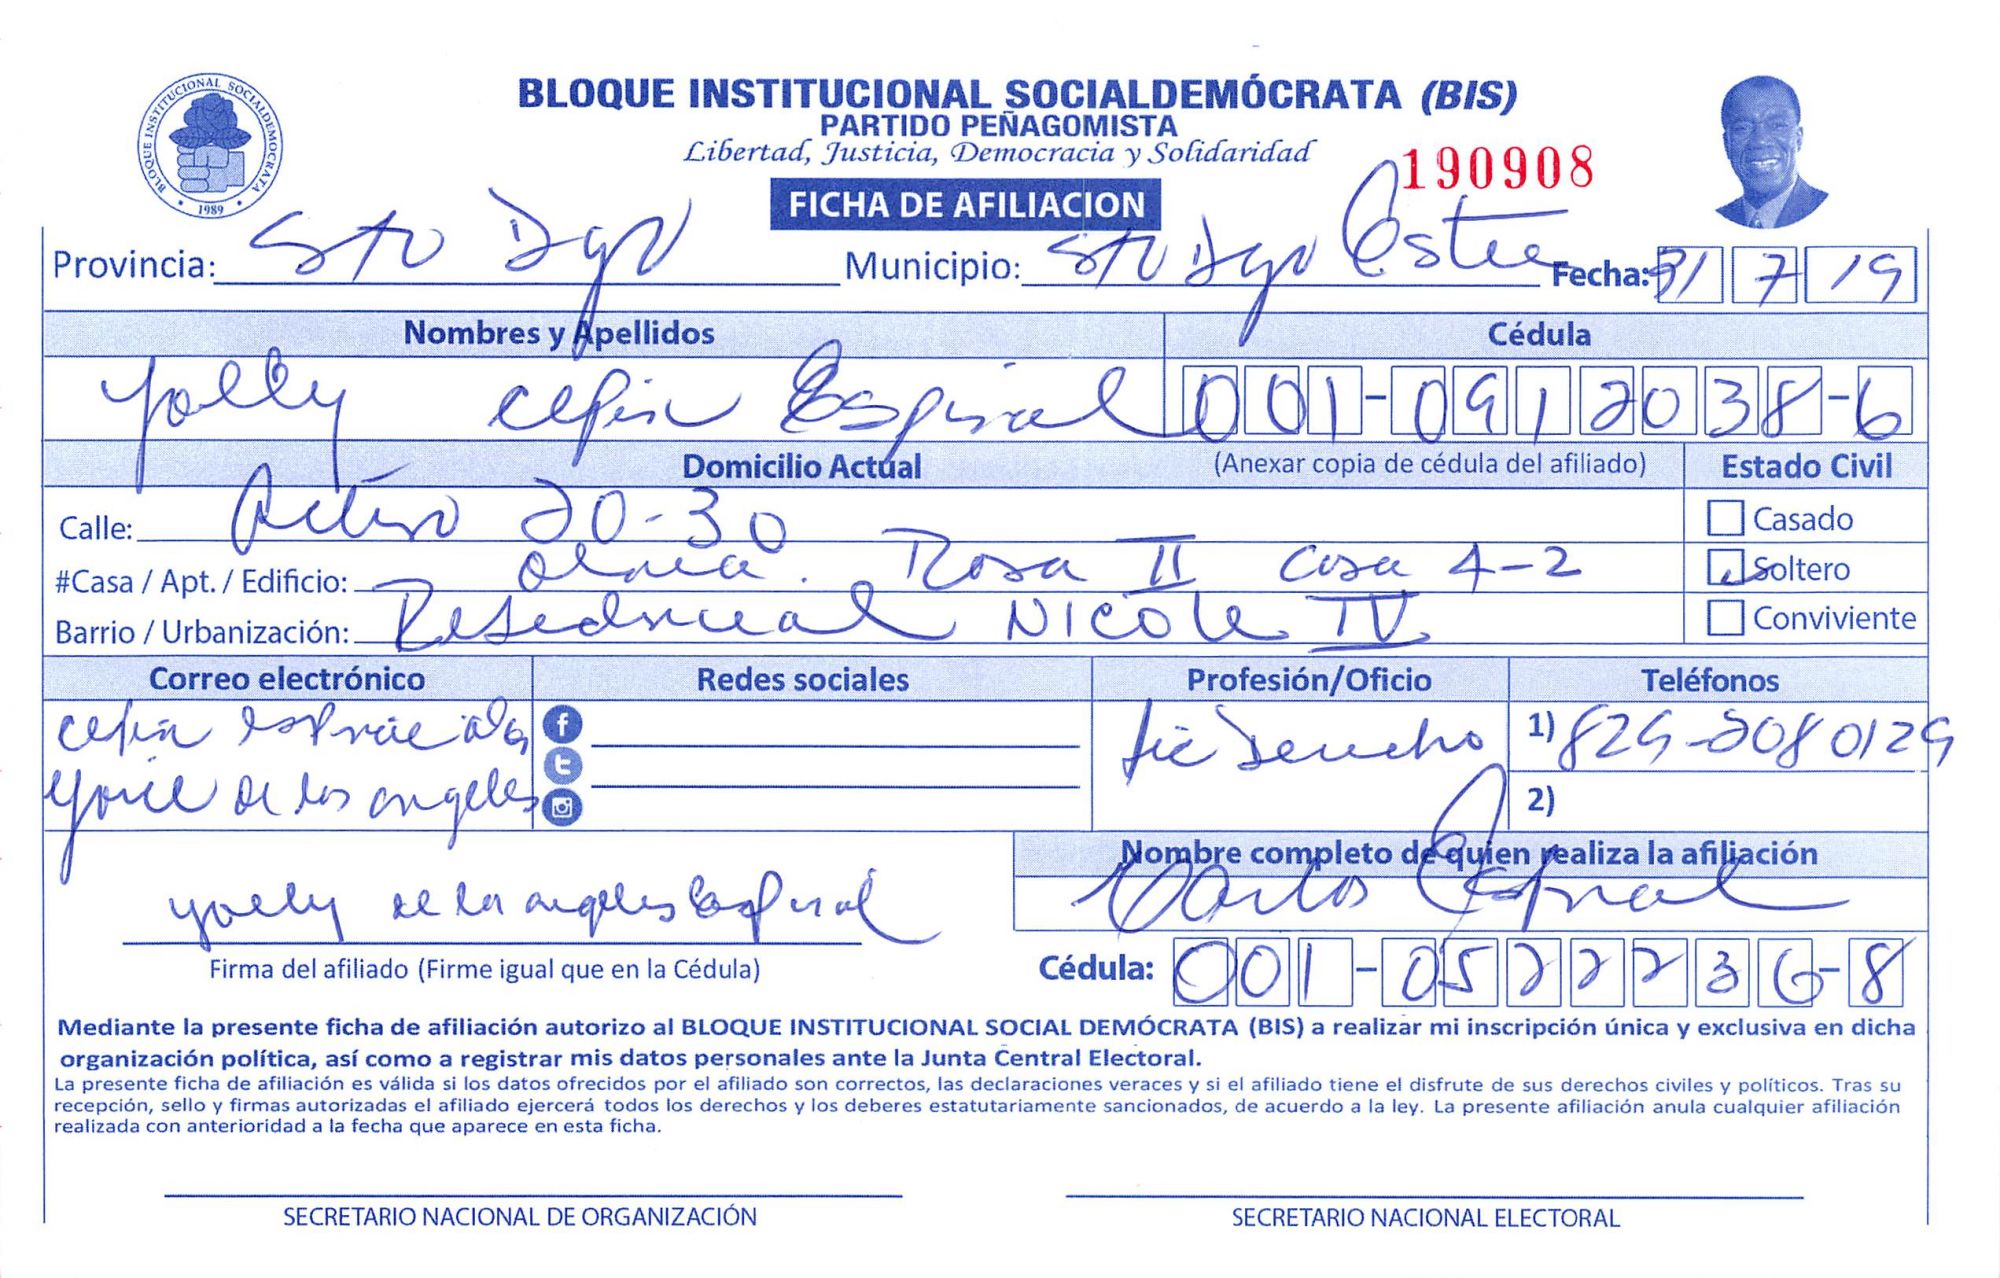 BLOQUE INSTITUCIONAL SOCIALDEMOCRATA
1989
BLOQUE INSTITUCIONAL SOCIALDEMÓCRATA (BIS)
PARTIDO PEÑAGOMISTA
Libertad, Justicia, Democracia y Solidaridad
190908
FICHA DE AFILIACION
Provincia: Sto Dgo Municipio: Sto Dgo Este Fecha: 31 7 19
Nombres y Apellidos Cédula
Yolly Espinal 001-0912038-6
Domicilio Actual (Anexar copia de cédula del afiliado) Estado Civil
Calle: 20-30 Casado
#Casa / Apt. / Edificio: Rosa II Casa 4-2 Soltero
Barrio / Urbanización: Residencial Nicole IV Conviviente
Correo electrónico Redes sociales Profesión/Oficio Teléfonos
Lic Derecho 1) 829-2080129
de los angeles 2)
Nombre completo de quien realiza la afiliación
Carlos Espinal
Yolly de los angeles Espinal
Firma del afiliado (Firme igual que en la Cédula) Cédula: 001-0522236-8
Mediante la presente ficha de afiliación autorizo al BLOQUE INSTITUCIONAL SOCIAL DEMÓCRATA (BIS) a realizar mi inscripción única y exclusiva en dicha
organización política, así como a registrar mis datos personales ante la Junta Central Electoral.
La presente ficha de afiliación es válida si los datos ofrecidos por el afiliado son correctos, las declaraciones veraces y si el afiliado tiene el disfrute de sus derechos civiles y políticos. Tras su
recepción, sello y firmas autorizadas el afiliado ejercerá todos los derechos y los deberes estatutariamente sancionados, de acuerdo a la ley. La presente afiliación anula cualquier afiliación
realizada con anterioridad a la fecha que aparece en esta ficha.
SECRETARIO NACIONAL DE ORGANIZACIÓN SECRETARIO NACIONAL ELECTORAL